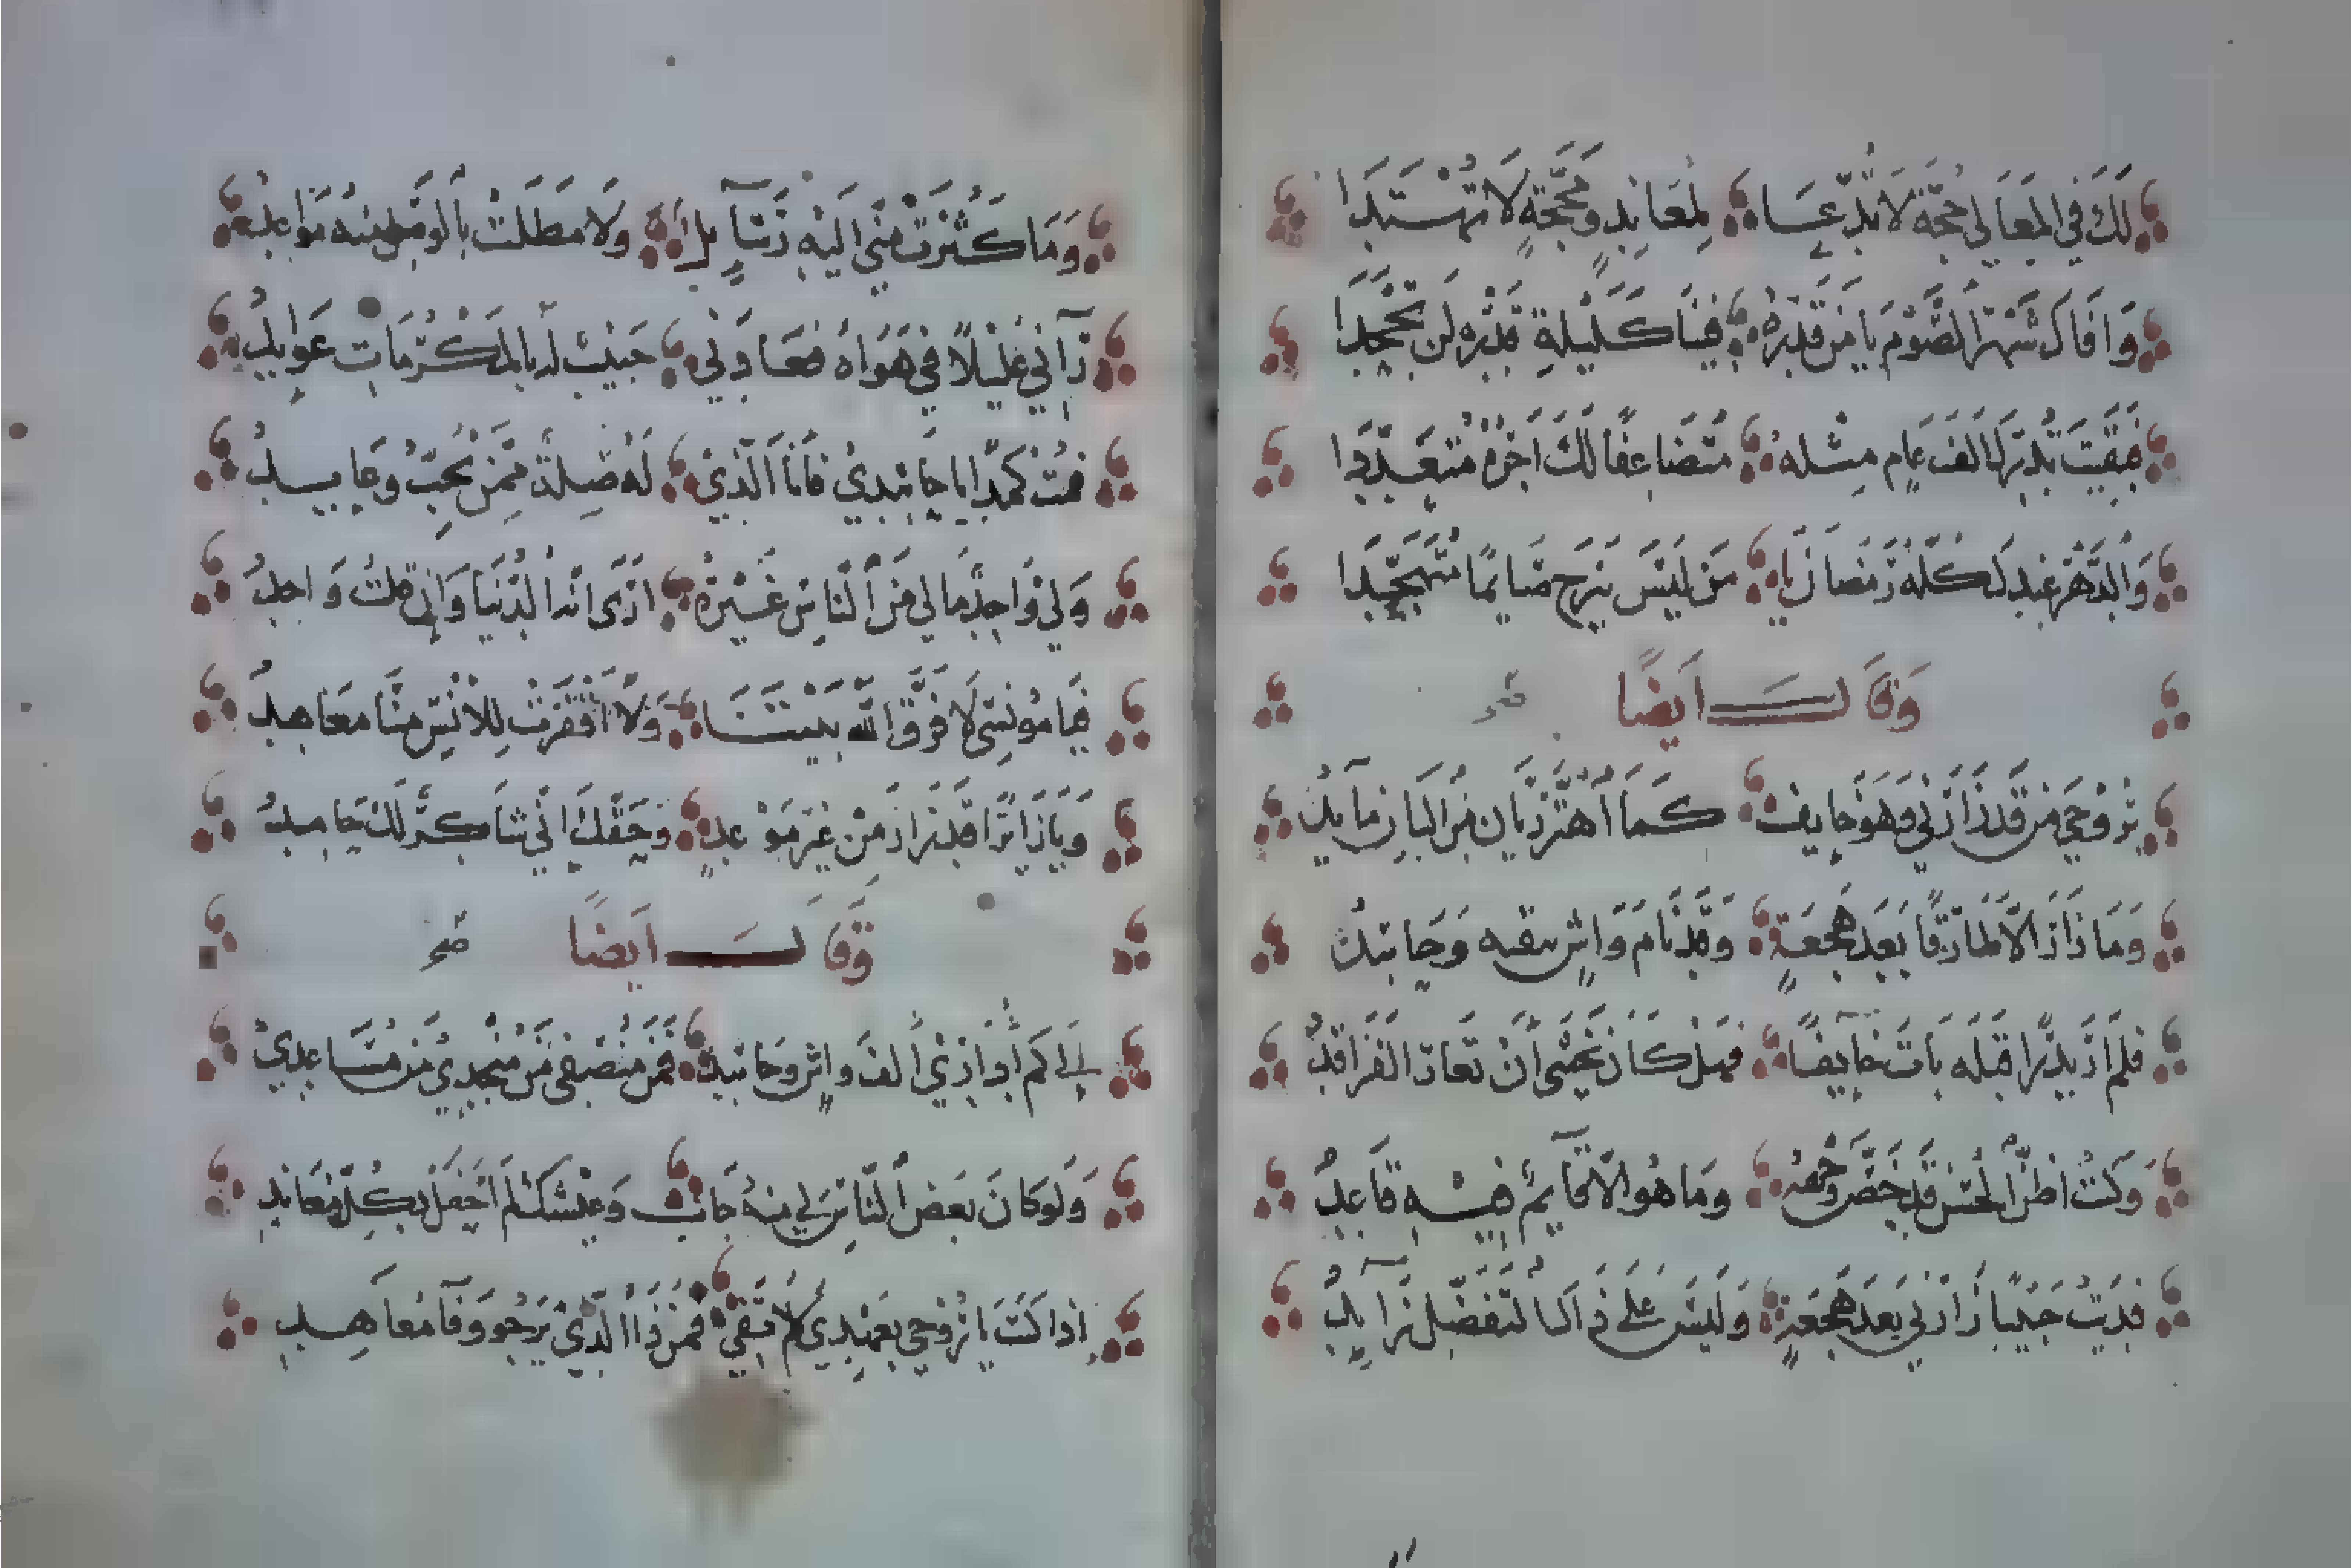 لَكَ فِي المَعَالِي حُجَّةٌ لَا تُدَّعَا لِمُعَانِدٍ وَمَحَجَّةٌ لَا تُهْتَدَا
وَافَاكَ شَهْرُ الصَّوْمِ يَا مَنْ قَدْرُهُ فِينَا كَلَيْلَةِ قَدْرِهِ لَنْ تُجْحَدَا
فَبَقِيتَ تُدْرِكُ أَلْفَ عَامٍ مِثْلَهُ مُتَضَاعِفًا لَكَ أَجْرُهُ مُتَعَدِّدَا
وَالدَّهْرُ عِنْدَكَ كُلُّهُ رَمَضَانُ يَا مَنْ لَيْسَ يَبْرَحُ صَايِمًا مُتَهَجِّدَا
وَقَالَ أَيْضًا
بِرُوحِيَ مَنْ قَدْ زَارَنِي وَهْوَ خَايِفٌ كَمَا اهْتَزَّ رَيَّانٌ مِنَ البَانِ مَايِدُ
وَمَا زَارَ إِلَّا طَارِقًا بَعْدَ هَجْعَةٍ وَقَدْ نَامَ وَاشٍ يَتَّقِيهِ وَحَاسِدُ
فَلَمْ أَرَ بَدْرًا قَبْلَهُ بَاتَ خَايِفًا فَهَلْ كَانَ يَخْشَى أَنْ تَغَارَ الفَرَاقِدُ
وَكُنْتُ أَظُنُّ الحُسْنَ قَدْ خَصَّ وَجْهَهُ وَمَا هُوَ إِلَّا قَايِمٌ فِيهِ قَاعِدُ
فَدَيْتُ حَبِيبًا زَارَنِي بَعْدَ هَجْعَةٍ وَلَيْسَ عَلَى ذَاكَ التَّفَضُّلِ زَايِدُ
وَمَا كَثُرَتْ مِنِّي إِلَيْهِ رَسَايِلٌ وَلَا مَطَلَتْ بِالوَصْلِ مِنْهُ مَوَاعِدُ
رَآنِي عَلِيلًا فِي هَوَاهُ فَعَادَنِي حَبِيبٌ لَهُ بِالمَكْرُمَاتِ عَوَايِدُ
فَمُتْ كَمَدًا يَا حَاسِدِي فَأَنَا الَّذِي لَهُ صِلَةٌ مِمَّنْ يُحِبُّ وَعَايِدُ
وَلِي وَاحِدٌ مَا لِي مِنَ النَّاسِ غَيْرُهُ أَرَى أَنَّهُ الدُّنْيَا وَإِنْ قُلْتُ وَاحِدُ
فَيَا مُونِسِي لَا فَرَّقَ اللَّهُ بَيْنَنَا وَلَا أَقْفَرَتْ لِلْأُنْسِ مِنَّا مَعَاهِدُ
وَيَا زَايِرًا قَدْ زَارَ مِنْ غَيْرِ مَوْعِدٍ وَحَقِّكَ إِنِّي شَاكِرٌ لَكَ حَامِدُ
وَقَالَ أَيْضًا
إِلَى كَمْ أُدَارِي أَلْفَ وَاشٍ وَحَاسِدِ فَمَنْ مُنْصِفِي مَنْ مُنْجِدِي مَنْ مُسَاعِدِي
وَلَوْ كَانَ بَعْضُ النَّاسِ لِي مِنْهُ جَانِبٌ وَعَيْشِكَ لَمْ أَحْفَلْ بِكُلِّ مُعَانِدِ
إِذَا كُنْتَ يَا رُوحِي بِعَهْدِيَ لَا تَفِي فَمَنْ ذَا الَّذِي يَرْجُو وَفَا مُعَاهِدِ